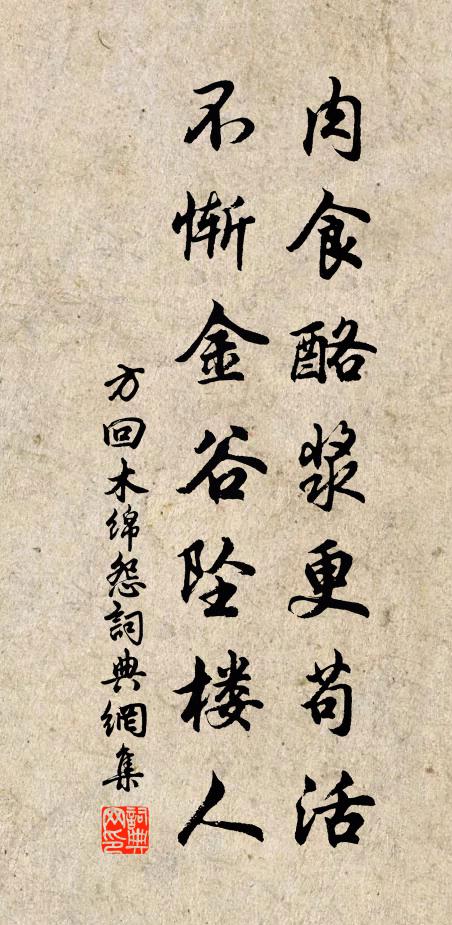 肉食酪浆更苟活
不惭金谷坠楼人
方回木绵怨詞典網集
詞典網印